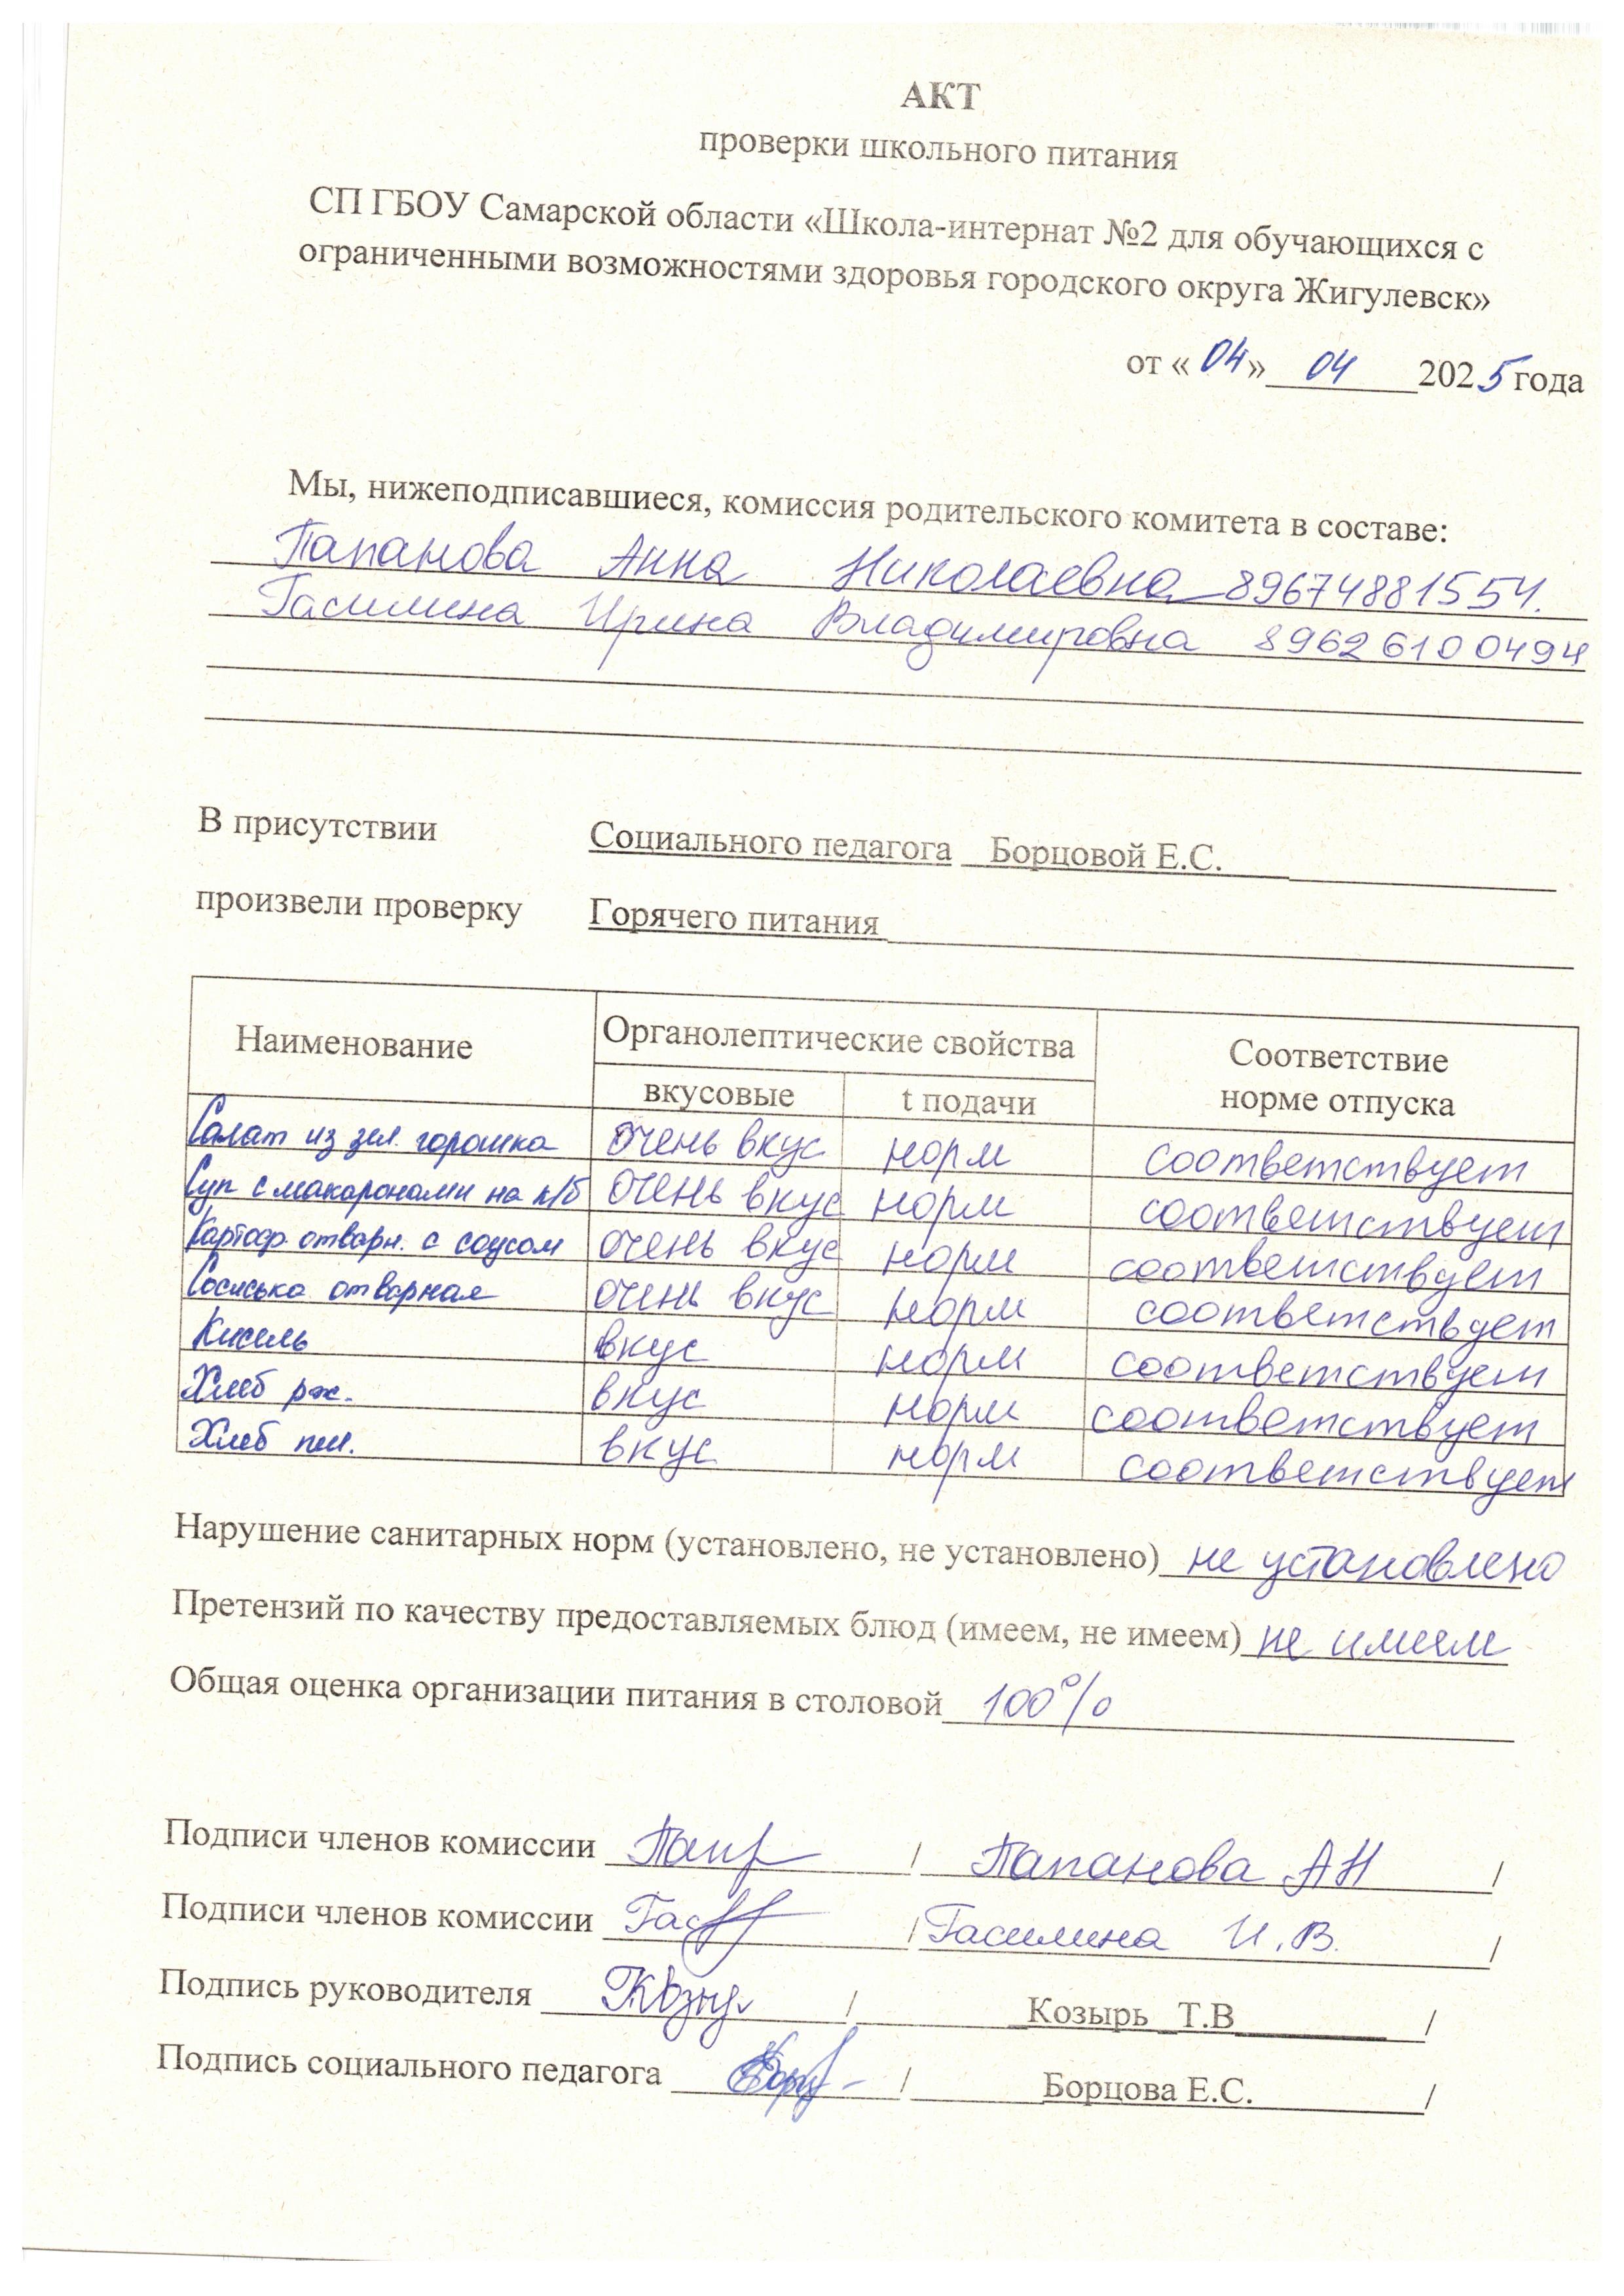 АКТ
проверки школьного питания
СП ГБОУ Самарской области «Школа-интернат №2 для обучающихся с
ограниченными возможностями здоровья городского округа Жигулевск»
от «04» 04 2025 года
Мы, нижеподписавшиеся, комиссия родительского комитета в составе:
Папанова Анна Николаевна 89674881554.
Гасилина Ирина Владимировна 89626100494
В присутствии Социального педагога Борцовой Е.С.
произвели проверку Горячего питания
Наименование Органолептические свойства Соответствие
вкусовые t подачи норме отпуска
Салат из зел. горошка очень вкус норм соответствует
Суп с макаронами на к/б очень вкус норм соответствует
Картоф. отварн. с соусом очень вкус норм соответствует
Сосиська отварная очень вкус норм соответствует
Кисель вкус норм соответствует
Хлеб рж. вкус норм соответствует
Хлеб пш. вкус норм соответствует
Нарушение санитарных норм (установлено, не установлено) не установлено
Претензий по качеству предоставляемых блюд (имеем, не имеем) не имеем
Общая оценка организации питания в столовой 100%
Подписи членов комиссии / Папанова АН /
Подписи членов комиссии / Гасилина И.В. /
Подпись руководителя / Козырь Т.В /
Подпись социального педагога / Борцова Е.С. /